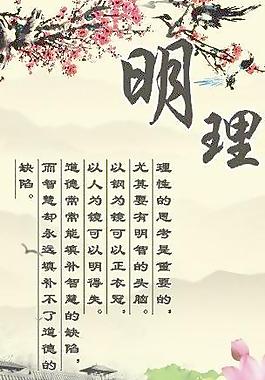 明理
理性的思考是重要的，
尤其要有明智的头脑。
以钢为镜可以正衣冠，
以人为镜可以明得失。
道德常常能填补智慧的缺陷，
而智慧却永远填补不了道德的
缺陷。